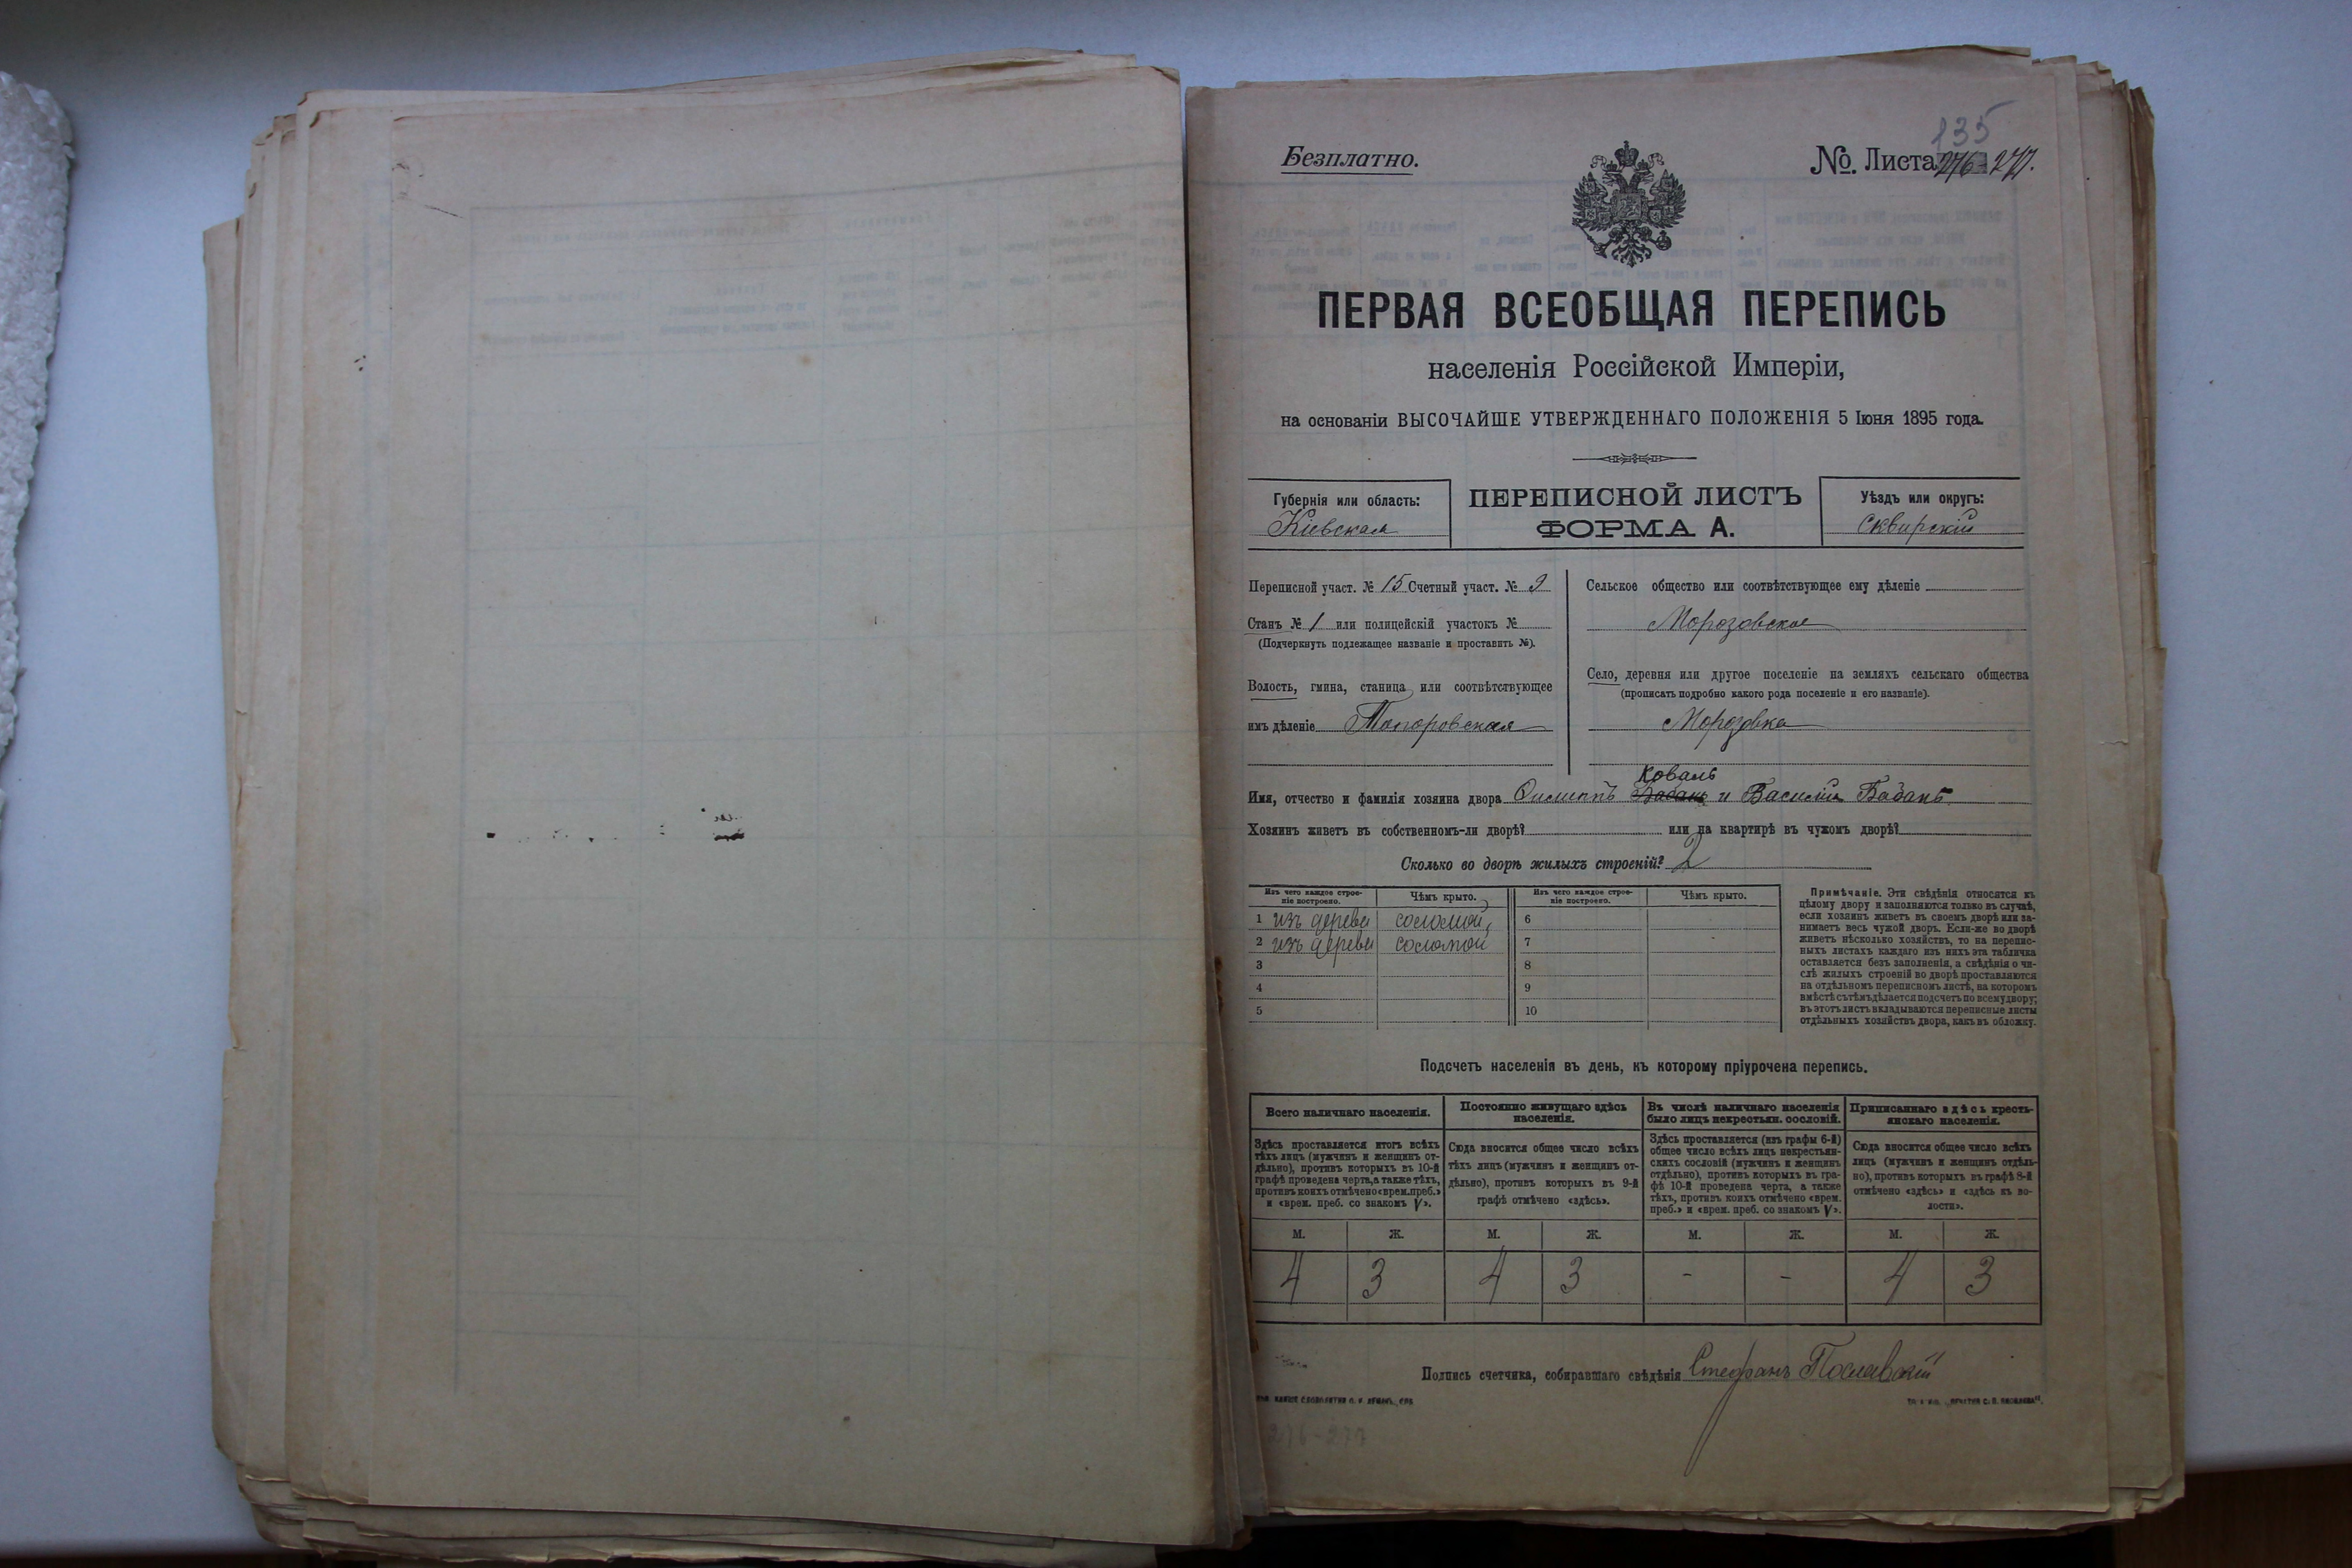 135
Безплатно.
№. Листа 276-277.
ПЕРВАЯ ВСЕОБЩАЯ ПЕРЕПИСЬ
населенія Россійской Имперіи,
на основаніи ВЫСОЧАЙШЕ УТВЕРЖДЕННАГО ПОЛОЖЕНІЯ 5 Іюня 1895 года.
Губернія или область:
Кіевская
ПЕРЕПИСНОЙ ЛИСТЪ
ФОРМА А.
Уѣздъ или округъ:
Сквирскій
Переписной участ. № 15 Счетный участ. № 9
Станъ № 1 или полицейскій участокъ №
(Подчеркнуть подлежащее названіе и проставить №).
Волость, гмина, станица или соотвѣтствующее
имъ дѣленіе Топоровская
Сельское общество или соотвѣтствующее ему дѣленіе
Морозовское
Село, деревня или другое поселеніе на земляхъ сельскаго общества
(прописать подробно какого рода поселеніе и его названіе).
Морозовка
Коваль
Имя, отчество и фамилія хозяина двора Филиппъ Бабанъ и Василій Бабанъ
Хозяинъ живетъ въ собственномъ-ли дворѣ? или на квартирѣ въ чужомъ дворѣ?
Сколько во дворѣ жилыхъ строеній? 2
Изъ чего каждое строе-
ніе построено.
Чѣмъ крыто.
Изъ чего каждое строе-
ніе построено.
Чѣмъ крыто.
1 изъ дерева соломой 6
2 изъ дерева соломой 7
3 8
4 9
5 10
Примѣчаніе. Эти свѣдѣнія относятся къ
цѣлому двору и заполняются только въ случаѣ,
если хозяинъ живетъ въ своемъ дворѣ или за-
нимаетъ весь чужой дворъ. Если-же во дворѣ
живетъ нѣсколько хозяйствъ, то на перепис-
ныхъ листахъ каждаго изъ нихъ эта табличка
оставляется безъ заполненія, а свѣдѣнія о чи-
слѣ жилыхъ строеній во дворѣ проставляются
на отдѣльномъ переписномъ листѣ, на которомъ
вмѣстѣ съ тѣмъ дѣлается подсчетъ по всему двору;
въ этотъ листъ вкладываются переписные листы
отдѣльныхъ хозяйствъ двора, какъ въ обложку.
Подсчетъ населенія въ день, къ которому пріурочена перепись.
Всего наличнаго населенія.
Здѣсь проставляется итогъ всѣхъ
тѣхъ лицъ (мужчинъ и женщинъ от-
дѣльно), противъ которыхъ въ 10-й
графѣ проведена черта, а также тѣхъ,
противъ коихъ отмѣчено «врем. преб.»
и «врем. преб. со знакомъ V».
Постоянно живущаго здѣсь
населенія.
Сюда вносится общее число всѣхъ
тѣхъ лицъ (мужчинъ и женщинъ от-
дѣльно), противъ которыхъ въ 9-й
графѣ отмѣчено «здѣсь».
Въ числѣ наличнаго населенія
было лицъ некрестьян. сословій.
Здѣсь проставляется (изъ графы 6-й)
общее число всѣхъ лицъ некрестьян-
скихъ сословій (мужчинъ и женщинъ
отдѣльно), противъ которыхъ въ гра-
фѣ 10-й проведена черта, а также
тѣхъ, противъ коихъ отмѣчено «врем.
преб.» и «врем. преб. со знакомъ V».
Приписаннаго здѣсь кресть-
янскаго населенія.
Сюда вносится общее число всѣхъ
лицъ (мужчинъ и женщинъ отдѣль-
но), противъ которыхъ въ графѣ 8-й
отмѣчено «здѣсь» и «здѣсь къ во-
лости».
М. Ж. М. Ж. М. Ж. М. Ж.
4 3 4 3 - - 4 3
Подпись счетчика, собиравшаго свѣдѣнія Стефанъ Пославскій
276-277